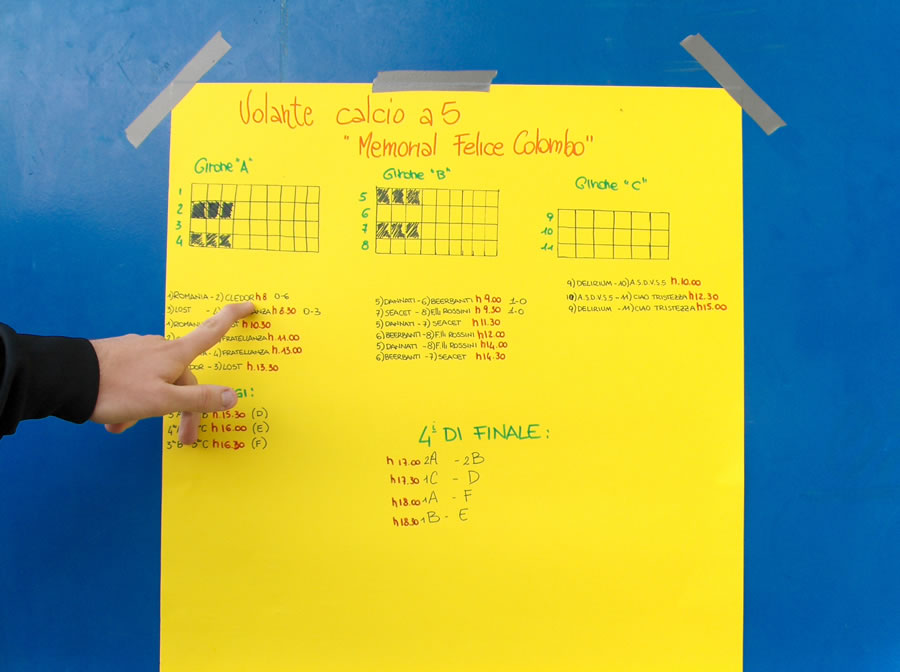 Volante calcio a 5
"Memorial Felice Colombo"
Girone "A"
1
2
3
4
Girone "B"
5
6
7
8
Girone "C"
9
10
11
1) ROMANIA - 2) CLEDOR h 8 0-6
3) LOST - 4) ANZA h 8.30 0-3
1) ROMANIA ST h 10.30
FRATELLANZA h 11.00
- 4) FRATELLANZA h 13.00
DOR - 3) LOST h. 13.30
5) DANNATI - 6) BEERBANTI h 9.00 1-0
7) SEACET - 8) F.lli ROSSINI h 9.30 1-0
5) DANNATI - 7) SEACET h 11.30
6) BEERBANTI - 8) F.lli ROSSINI h 12.00
5) DANNATI - 8) F.lli ROSSINI h 14.00
6) BEERBANTI - 7) SEACET h 14.30
9) DELIRIUM - 10) A.S.D.V.S.5 h. 10.00
10) A.S.D.V.S.5 - 11) CIAO TRISTEZZA h 12.30
9) DELIRIUM - 11) CIAO TRISTEZZA h 15.00
GI:
3°A B h 15.30 (D)
4°A °C h 16.00 (E)
3°B 3°C h 16.30 (F)
4i DI FINALE:
h 17.00 2A - 2B
h 17.30 1C - D
h 18.00 1A - F
h 18.30 1B - E